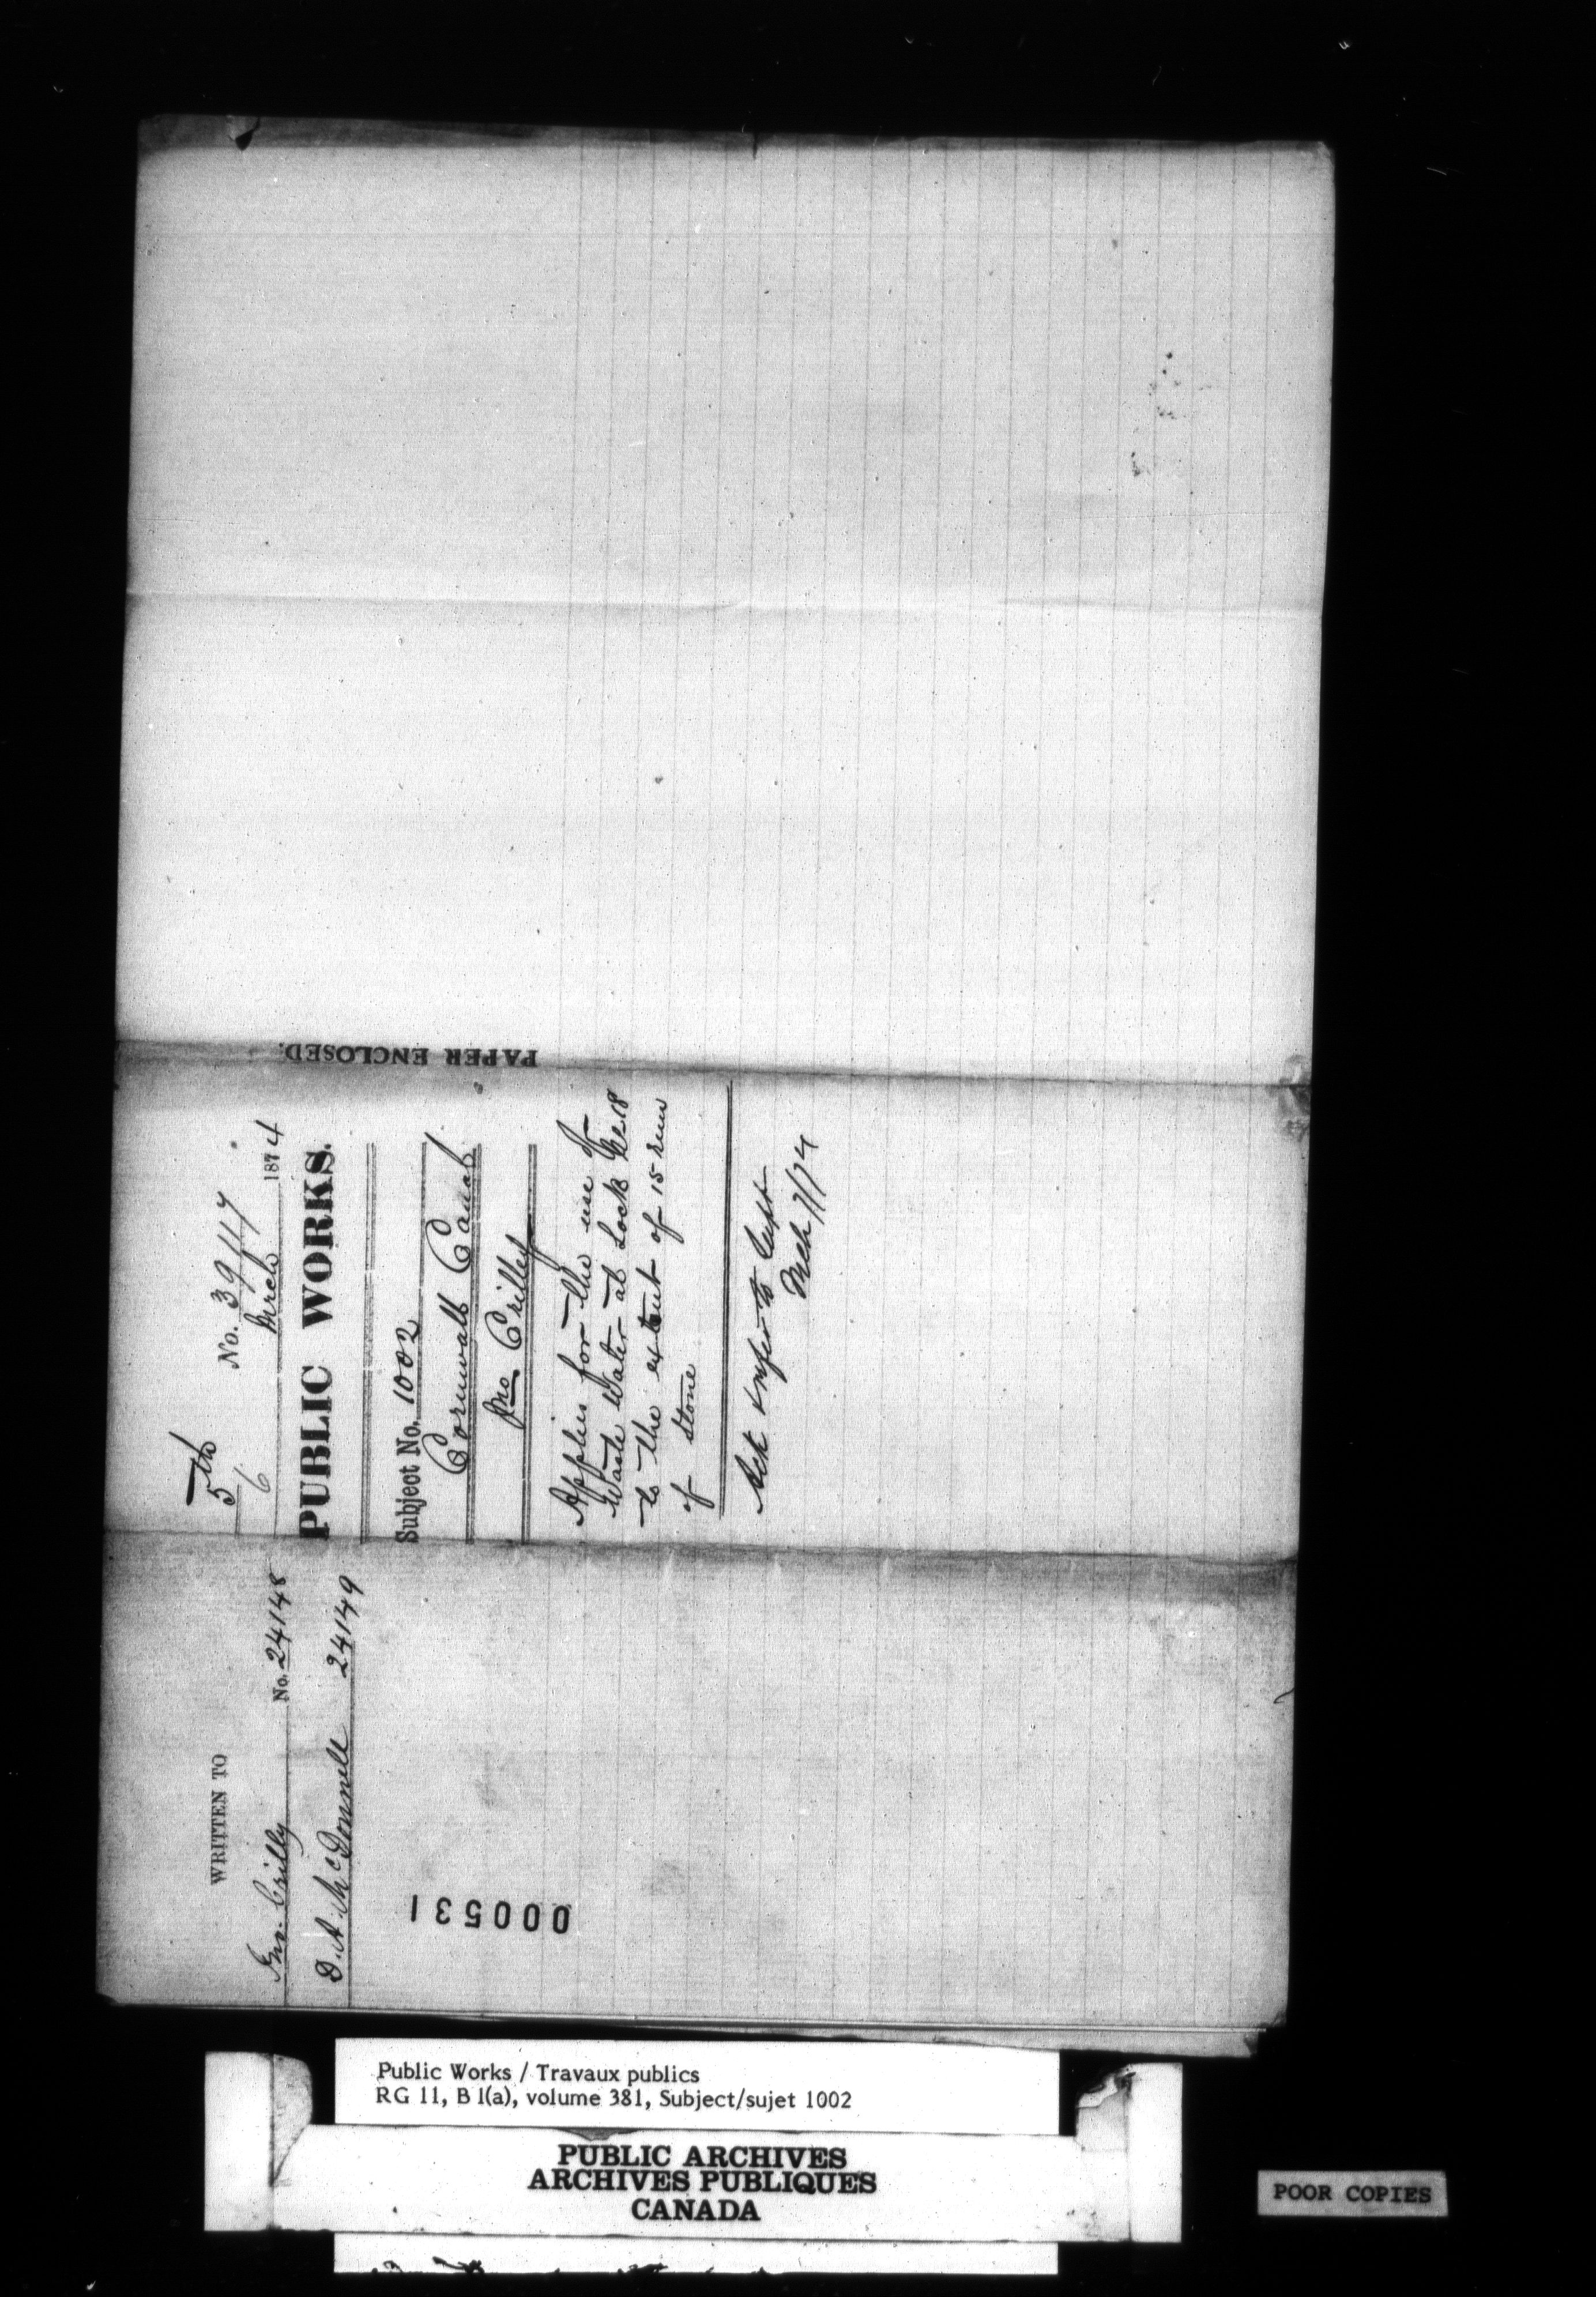 WRITTEN TO
Jno. Crilly No. 24148
D. A. McDonnell 24149
000531
5th
6
No. 39117
March 1874
PUBLIC WORKS.
Subject No. 1002
Cornwall Canal
Jno Crilley
Applies for the use of
Waste Water at Lock No. 18
to the extent of 15 run
of stone
Ack & refer to Supt
Mch 7/74
PAPER ENCLOSED.
Public Works / Travaux publics
RG 11, B 1(a), volume 381, Subject/sujet 1002
PUBLIC ARCHIVES
ARCHIVES PUBLIQUES
CANADA
POOR COPIES